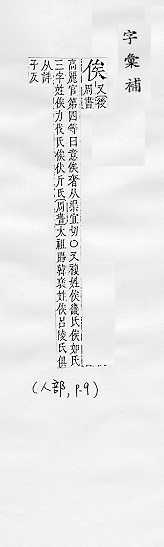 字彙補
俟 又後
周書
高麗官第四等曰意俟奢从渠宜切○又複姓俟畿氏俟奴氏
三字姓俟力伐氏俟伏斤氏周書太祖爵韓襃姓俟呂陵氏俱
从詩
子友
(人部, p.9)